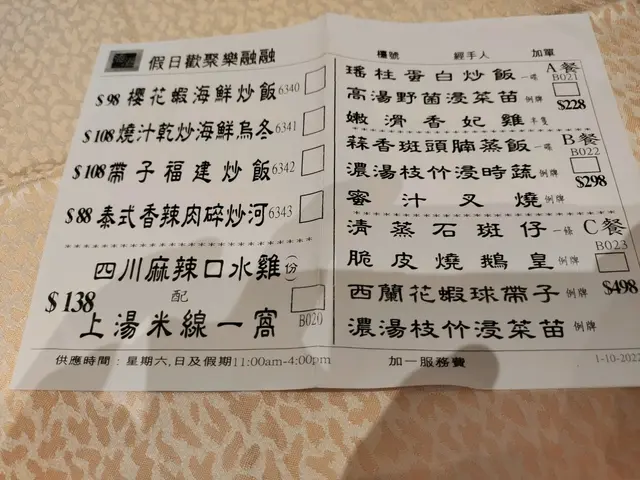 假日歡聚樂融融
$98 櫻花蝦海鮮炒飯 6340
$108 燒汁乾炒海鮮烏冬 6341
$108 帶子福建炒飯 6342
$88 泰式香辣肉碎炒河 6343
四川麻辣口水雞(份)
$138 配
上湯米線一窩 B020
檯號 經手人 加單
瑤柱蛋白炒飯 一碟 A餐 B021
高湯野菌浸菜苗 例牌 $228
嫩滑香妃雞 半隻
蒜香斑頭腩蒸飯 一碟 B餐 B022
濃湯枝竹浸時蔬 例牌 $298
蜜汁叉燒 例牌
清蒸石斑仔 一條 C餐 B023
脆皮燒鵝皇 例牌
西蘭花蝦球帶子 例牌 $498
濃湯枝竹浸菜苗 例牌
供應時間：星期六,日及假期11:00am-4:00pm 加一服務費 1-10-2022